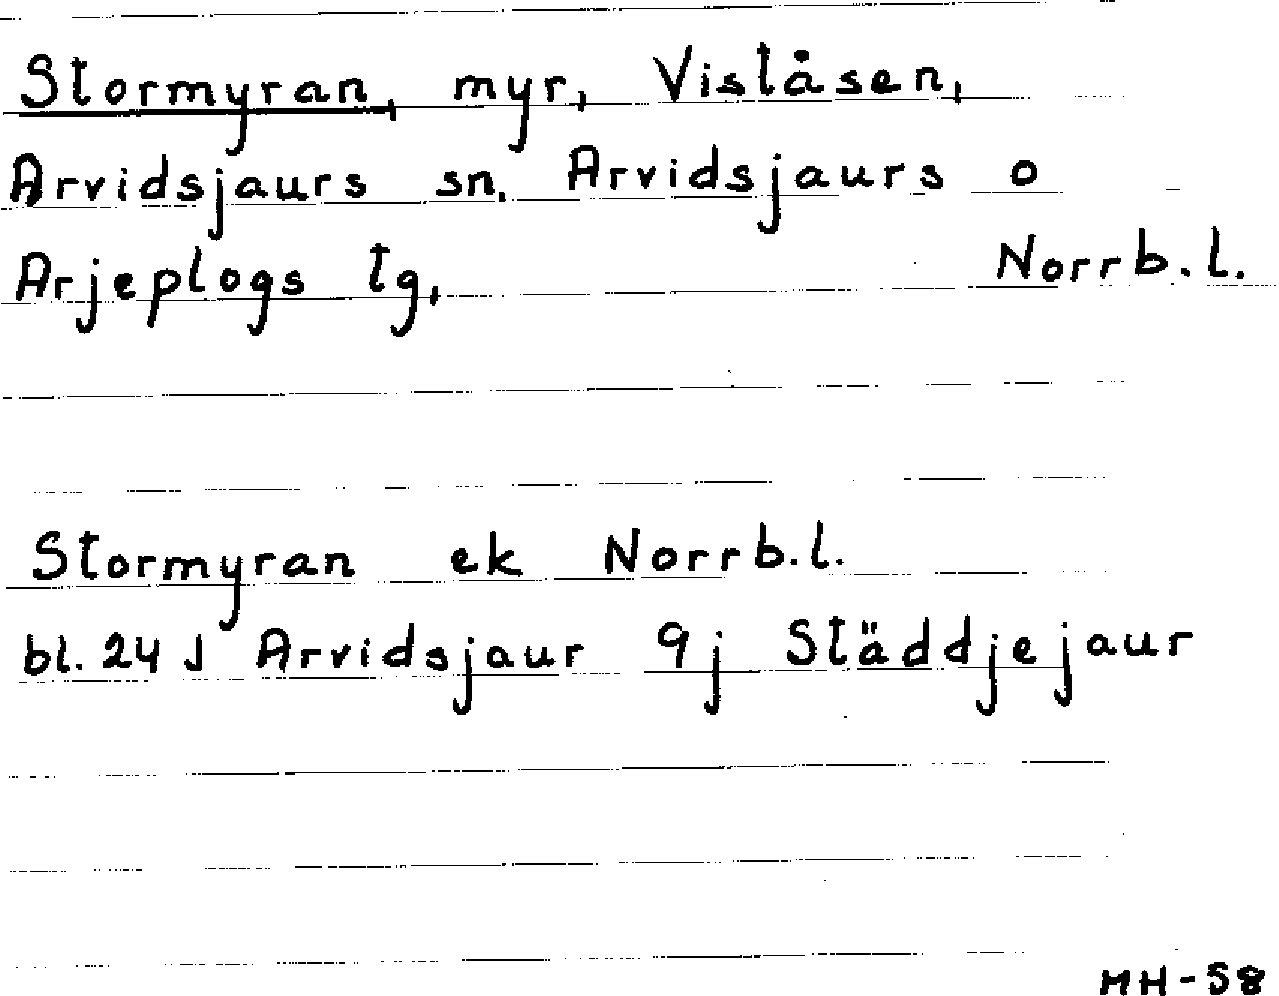 Stormyran, myr, Viståsen,
Arvidsjaurs sn. Arvidsjaurs o
Arjeplogs tg, Norrb.l.
Stormyran ek Norrb.l.
bl. 24 J Arvidsjaur 9j Städdjejaur
MH-58